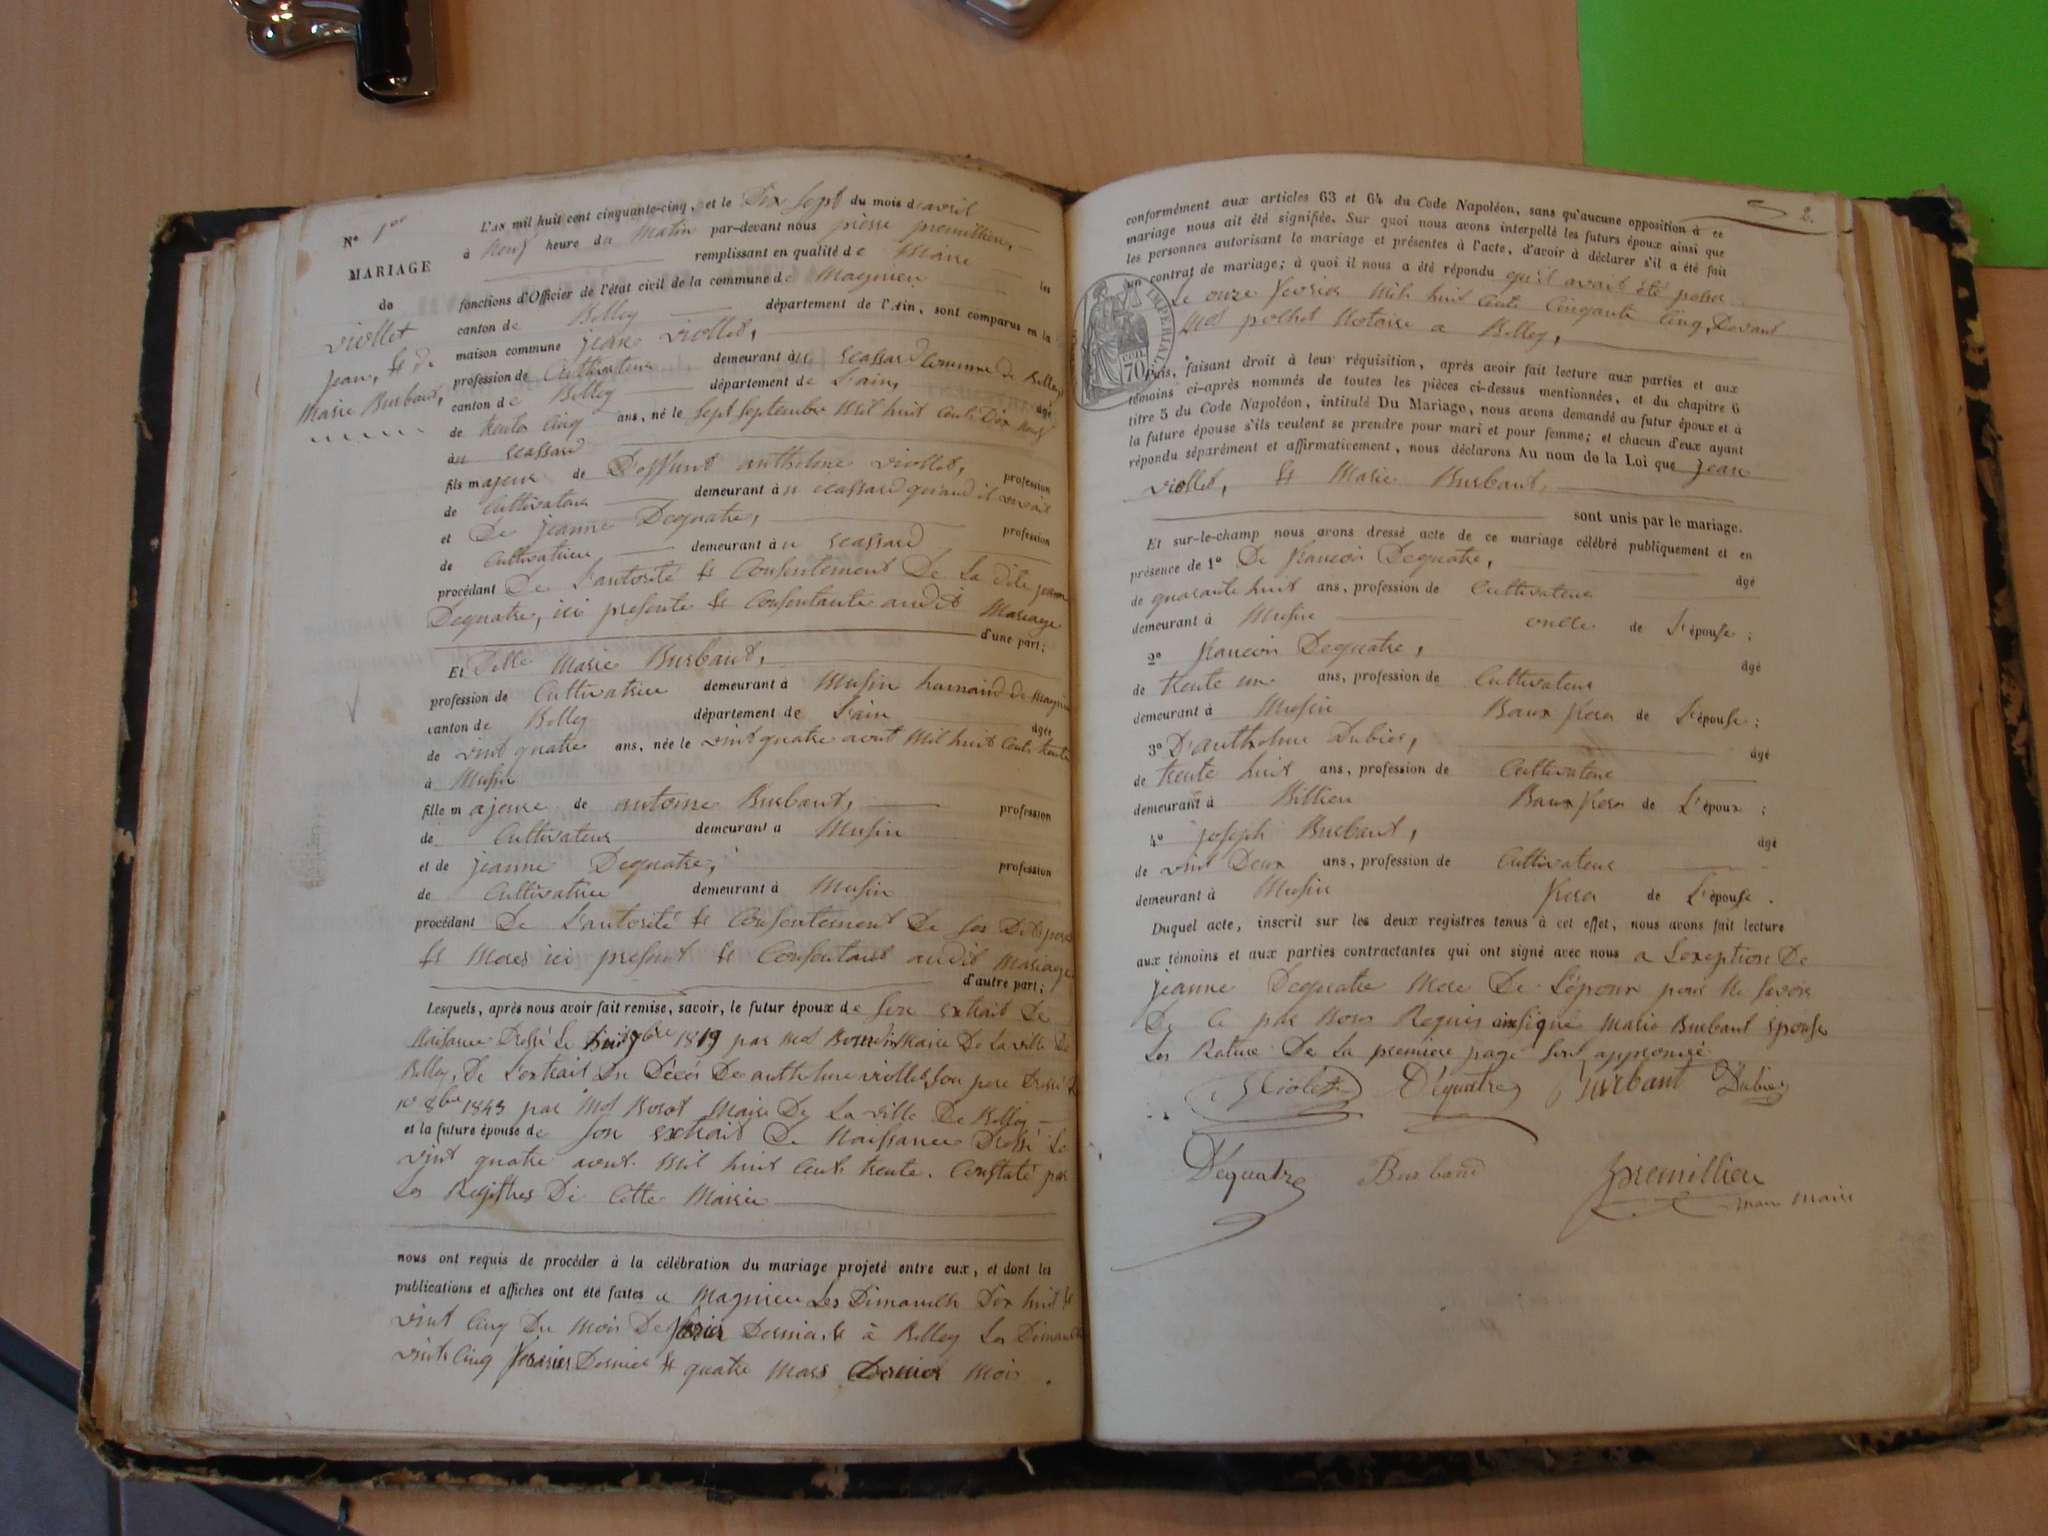 N° 1er
MARIAGE
de
Viollet
jean, & de
Marie Burbaut,
L'AN mil huit cent cinquante-cinq, et le Dix sept du mois d'avril
à Neuf heure du Matin par-devant nous pierre premillieu,
remplissant en qualité de Maire les
fonctions d'Officier de l'état civil de la commune de Magnieu
canton de Belley département de l'Ain, sont comparus en la
maison commune jean viollet,
profession de Cultivateur demeurant à scassard Commune de Belley
canton de Belley département de L'ain, âgé
de trente Cinq ans, né le sept septembre Mil huit Cents Dix Neuf
à scassard
fils majeur de Deffunt anthelme viollet, profession
de Cultivateur demeurant à scassard quand il vivait
et De jeanne Dequatre, profession
de Cultivatrice demeurant à scassard
procédant De L'autorité & Consentement De La dite jeanne
Dequatre, ici presente & Consentante audit Mariage
d'une part;
Et Delle Marie Burbaut,
profession de Cultivatrice demeurant à Musin hamaud de Magnieu
canton de Belley département de L'ain âgée
de vint quatre ans, née le vint quatre aout Mil huit Cents trente
à Musin
fille majeure de antoine Burbaut, profession
de Cultivateur demeurant a Musin
et de jeanne Dequatre, profession
de Cultivatrice demeurant à Musin
procédant De L'autorité & Consentement De ses Dits pere
& Meres ici present & Consentant audit Mariage
d'autre part;
Lesquels, après nous avoir fait remise, savoir, le futur époux de son extrait De
Naissance Dressé Le 7bre 1819 par Md Maire De La ville De
Belley, De L'extrait Du Décés De anthelme viollet, son pere Dressé
10 8bre 1843 par Md Maire De La ville De Belley
et la future épouse de son extrait De Naissance Dressé Le
vint quatre aout Mil huit Cents trente. Constaté par
Les Registres De Cette Mairie
nous ont requis de procéder à la célébration du mariage projeté entre eux, et dont les
publications et affiches ont été faites a Magnieu Les Dimanche Dix huit &
vint Cinq Du Mois De fevrier Dernier, & à Belley Les Dimanche
vint Cinq fevrier Dernier & quatre Mars Dernier Mois.
2.
conformément aux articles 63 et 64 du Code Napoléon, sans qu'aucune opposition à ce
mariage nous ait été signifiée. Sur quoi nous avons interpellé les futurs époux ainsi que
les personnes autorisant le mariage et présentes à l'acte, d'avoir à déclarer s'il a été fait
un contrat de mariage; à quoi il nous a été répondu qu'il avait été passé
Le onze fevrier Mil huit Cents Cinquante Cinq, Devant
Md pochet Notaire a Belley,
IMPERIAL
70
Puis, faisant droit à leur réquisition, après avoir fait lecture aux parties et aux
témoins ci-après nommés de toutes les pièces ci-dessus mentionnées, et du chapitre 6
titre 5 du Code Napoléon, intitulé Du Mariage, nous avons demandé au futur époux et à
la future épouse s'ils veulent se prendre pour mari et pour femme; et chacun d'eux ayant
répondu séparément et affirmativement, nous déclarons Au nom de la Loi que jean
viollet, & Marie Burbaut,
sont unis par le mariage.
Et sur-le-champ nous avons dressé acte de ce mariage célébré publiquement et en
présence de 1° De francois Dequatre, âgé
de quarante huit ans, profession de Cultivateur
demeurant à Musin oncle de L'épouse;
2° francois Dequatre, âgé
de trente un ans, profession de Cultivateur
demeurant à Musin Beau frere de L'épouse;
3° D'anthelme Dubier, âgé
de trente huit ans, profession de Cultivateur
demeurant à Billieu Beau frere de L'époux;
4° joseph Burbaut, âgé
de vint Deux ans, profession de Cultivateur
demeurant à Musin frere de L'épouse.
Duquel acte, inscrit sur les deux registres tenus à cet effet, nous avons fait lecture
aux témoins et aux parties contractantes qui ont signé avec nous a L'exeption De
jeanne Dequatre Mere De L'époux pour Ne savoir
De Ce par Nous Requis ainsi que Marie Burbaut épouse
Les Rature De La premiere page sont approuvé
Violet Déquatre Burbant Dubier
Déquatre Burband premillieu
maire